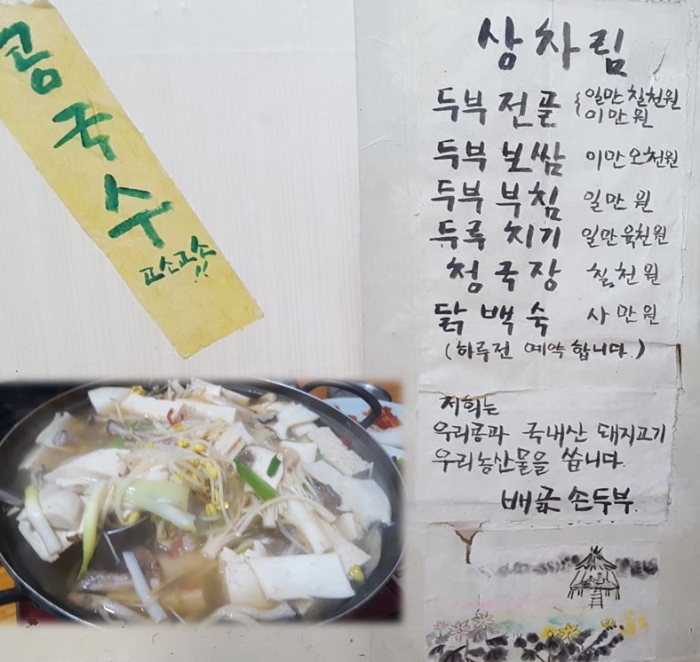 콩국수
고소고소!!
상차림
두부전골 일만칠천원
이만원
두부보쌈 이만오천원
두부부침 일만원
두루치기 일만육천원
청국장 칠천원
닭백숙 사만원
(하루전 예약합니다.)
저희는
우리콩과 국내산 돼지고기
우리농산물을 씁니다.
배꽃 손두부